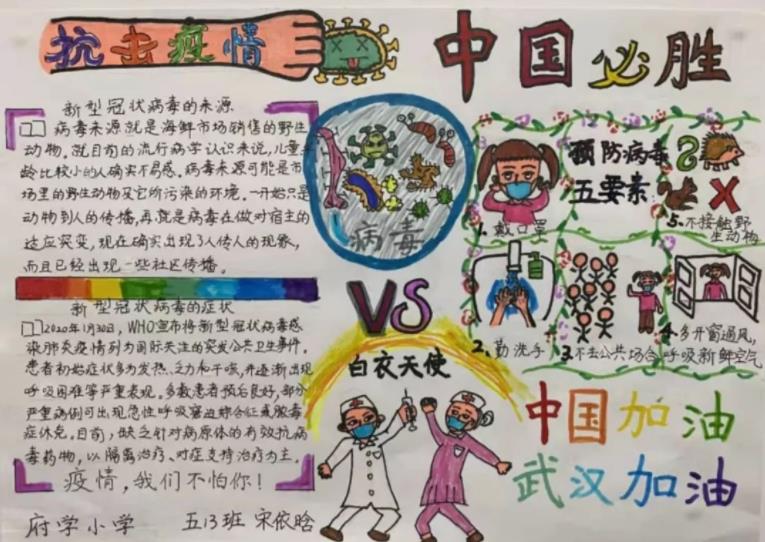 抗击疫情
中国必胜
新型冠状病毒的来源
病毒来源就是海鲜市场销售的野生
动物。就目前的流行病学认识来说,儿童年
龄比较小的人确实不易感。病毒来源可能是市
场里的野生动物及它所污染的环境。一开始只是
动物到人的传播,再就是病毒在做对宿主的
适应突变,现在确实出现了人传人的现象,
而且已经出现一些社区传播。
新型冠状病毒的症状
2020年1月30日,WHO宣布将新型冠状病毒感
染肺炎疫情列为国际关注的突发公共卫生事件。
患者初始症状多为发热、乏力和干咳,并逐渐出现
呼吸困难等严重表现。多数患者预后良好,部分
严重病例可出现急性呼吸窘迫综合征或脓毒
症休克。目前,缺乏针对病原体的有效抗病
毒药物,以隔离治疗、对症支持治疗为主。
疫情,我们不怕你!
府学小学 五13班 宋依晗
病毒
VS
白衣天使
预防病毒
五要素
1.戴口罩
5.不接触野
生动物
2.勤洗手
3.不去公共场合
4.多开窗通风,
呼吸新鲜空气
中国加油
武汉加油